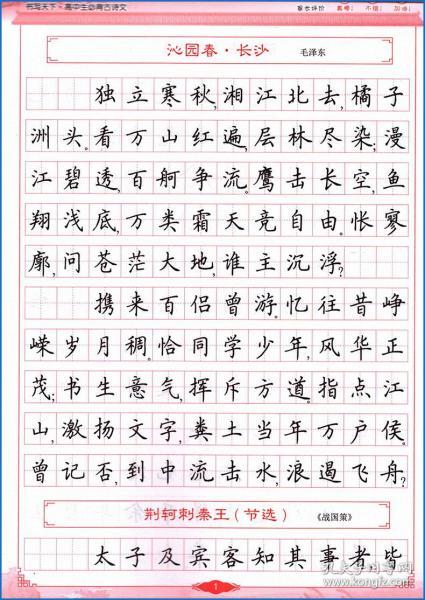 书写天下·高中生必背古诗文 家长评价 真棒! 不错! 加油!
沁园春·长沙 毛泽东
独立寒秋,湘江北去,橘子
洲头。看万山红遍,层林尽染;漫
江碧透,百舸争流。鹰击长空,鱼
翔浅底,万类霜天竞自由。怅寥
廓,问苍茫大地,谁主沉浮?
携来百侣曾游。忆往昔峥
嵘岁月稠。恰同学少年,风华正
茂;书生意气,挥斥方遒。指点江
山,激扬文字,粪土当年万户侯。
曾记否,到中流击水,浪遏飞舟?
荆轲刺秦王(节选) 《战国策》
太子及宾客知其事者皆
1